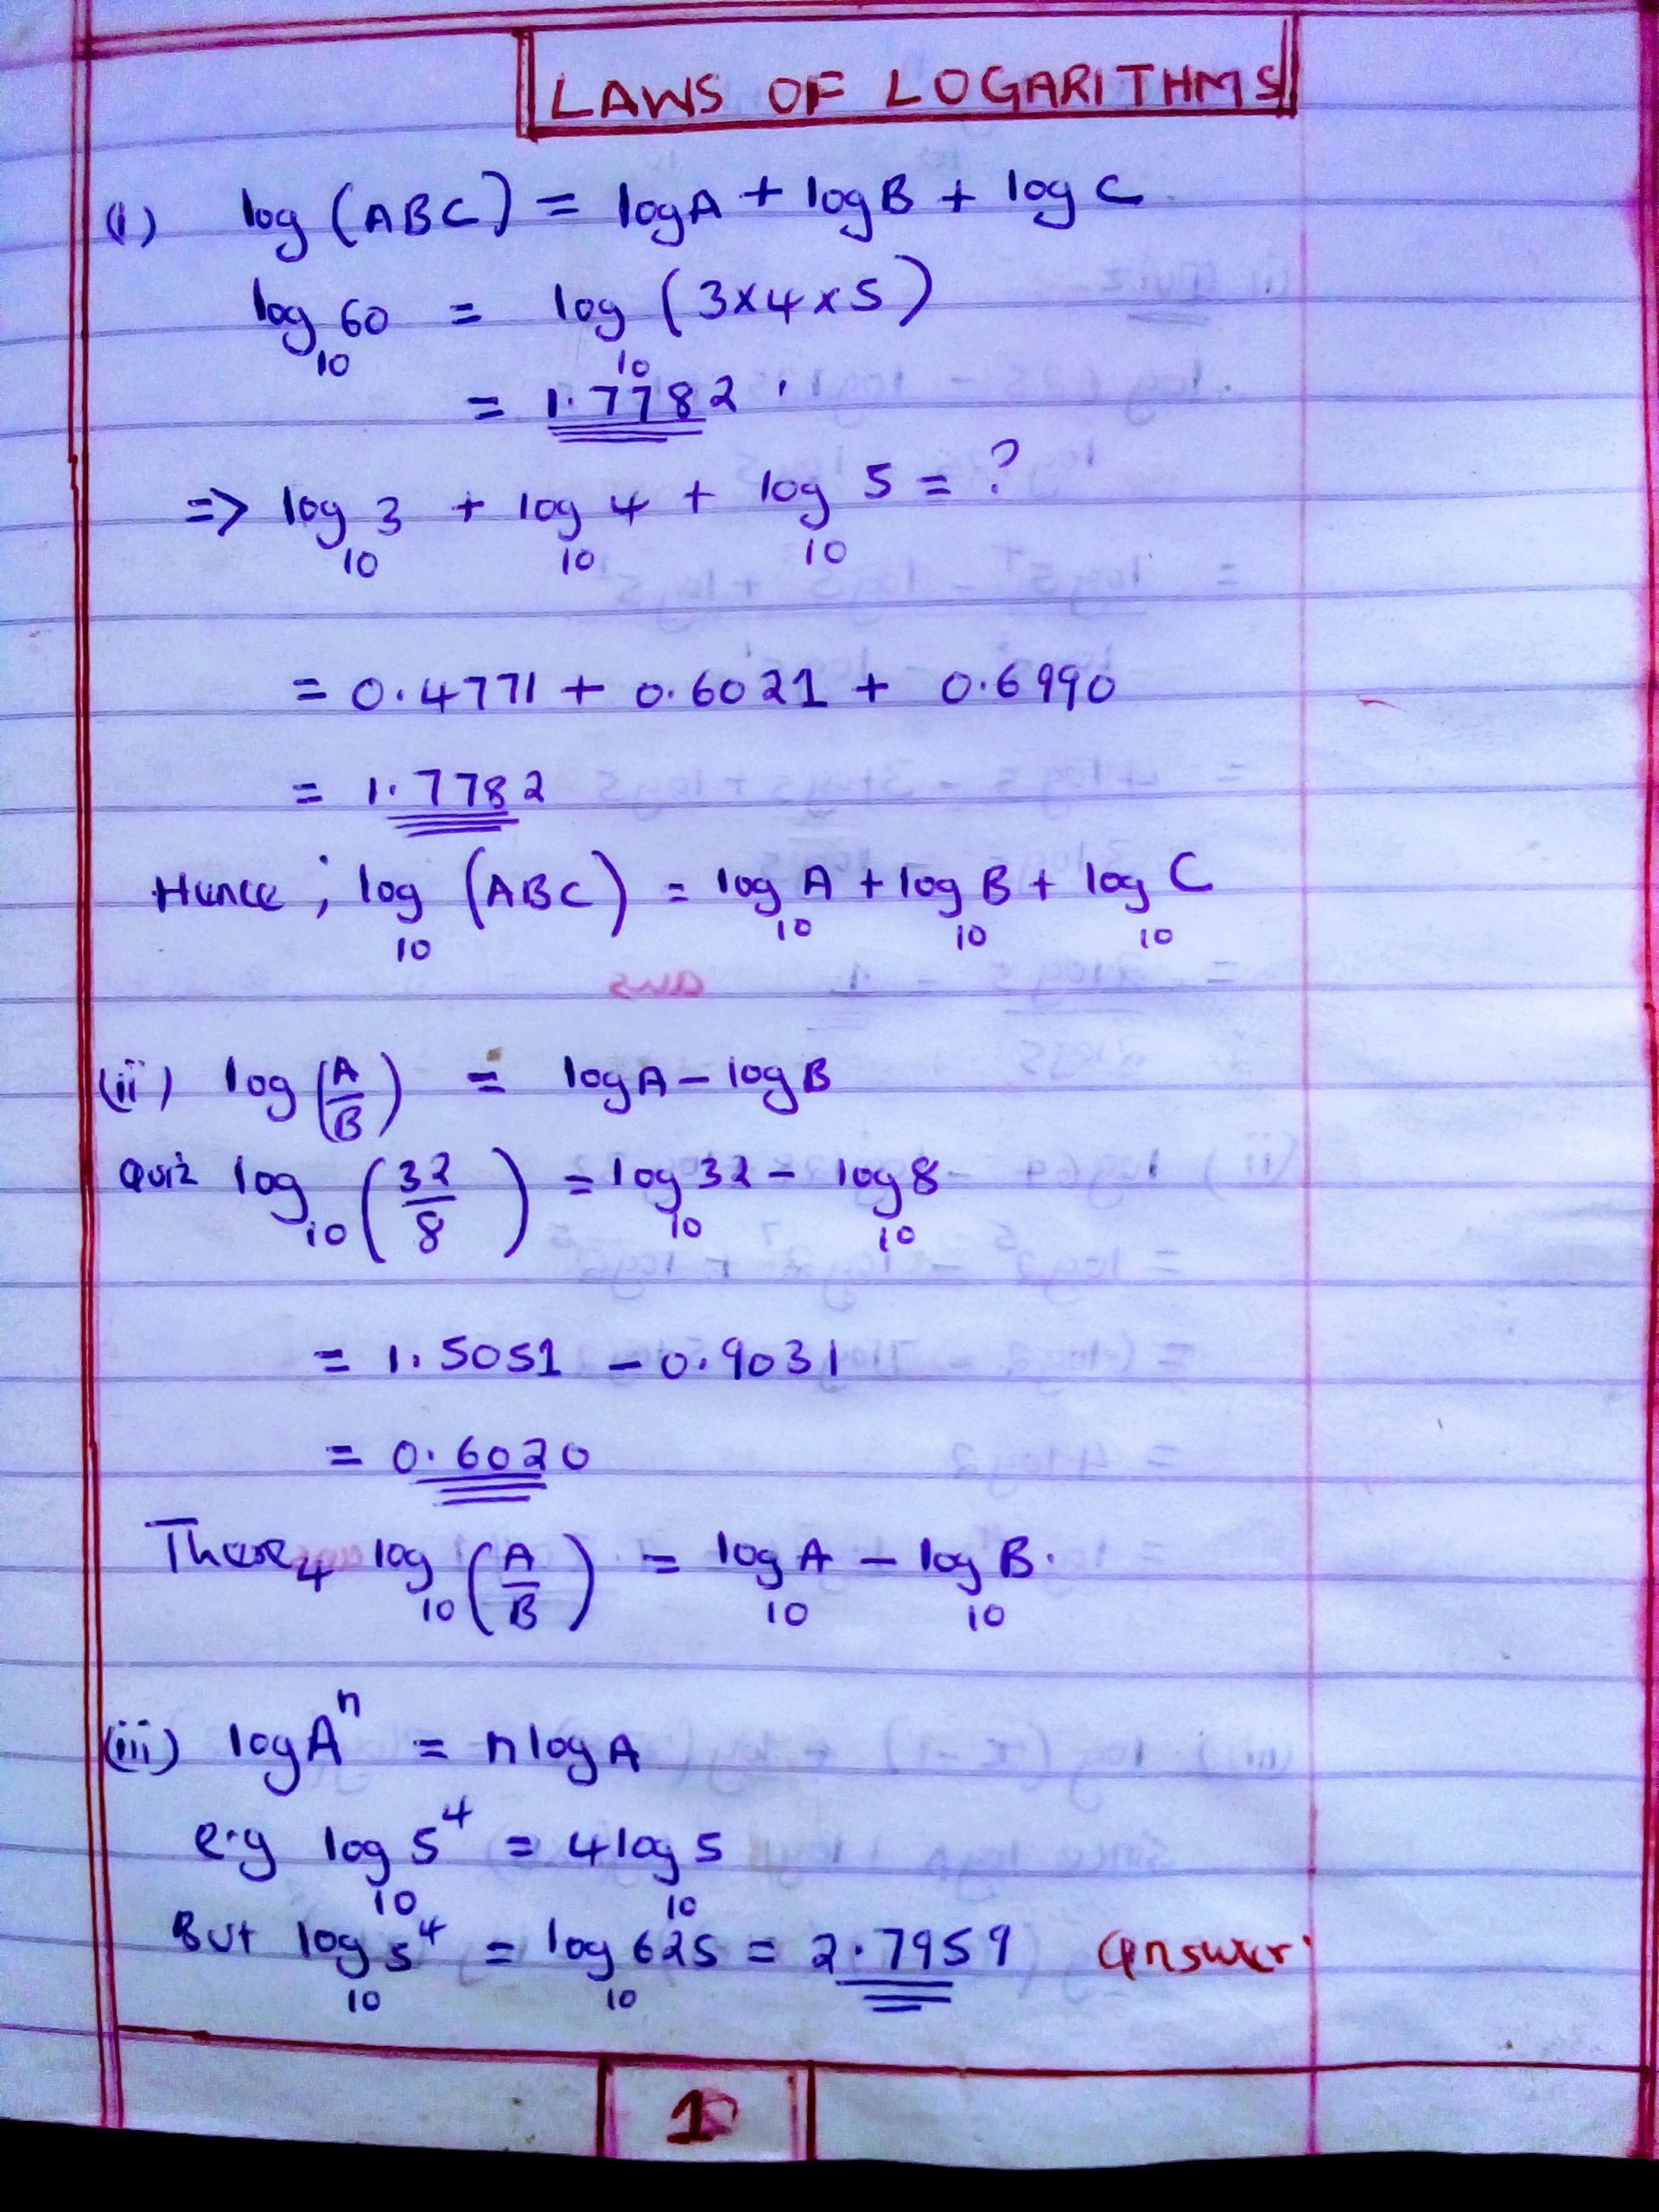 LAWS OF LOGARITHMS
(i) log (ABC) = logA + logB + log C
log₁₀ 60 = log₁₀ (3×4×5)
= 1.7782
=> log₁₀ 3 + log₁₀ 4 + log₁₀ 5 = ?
= 0.4771 + 0.6021 + 0.6990
= 1.7782
Hence ; log₁₀ (ABC) = log₁₀ A + log₁₀ B + log₁₀ C
(ii) log (A/B) = logA – logB
Quiz log₁₀ (32/8) = log₁₀ 32 – log₁₀ 8
= 1.5051 – 0.9031
= 0.6020
There4 log₁₀ (A/B) = log₁₀ A – log₁₀ B.
(iii) logAⁿ = nlogA
e.g log₁₀ 5⁴ = 4log₁₀ 5
But log₁₀ 5⁴ = log₁₀ 625 = 2.7959 answer.
1